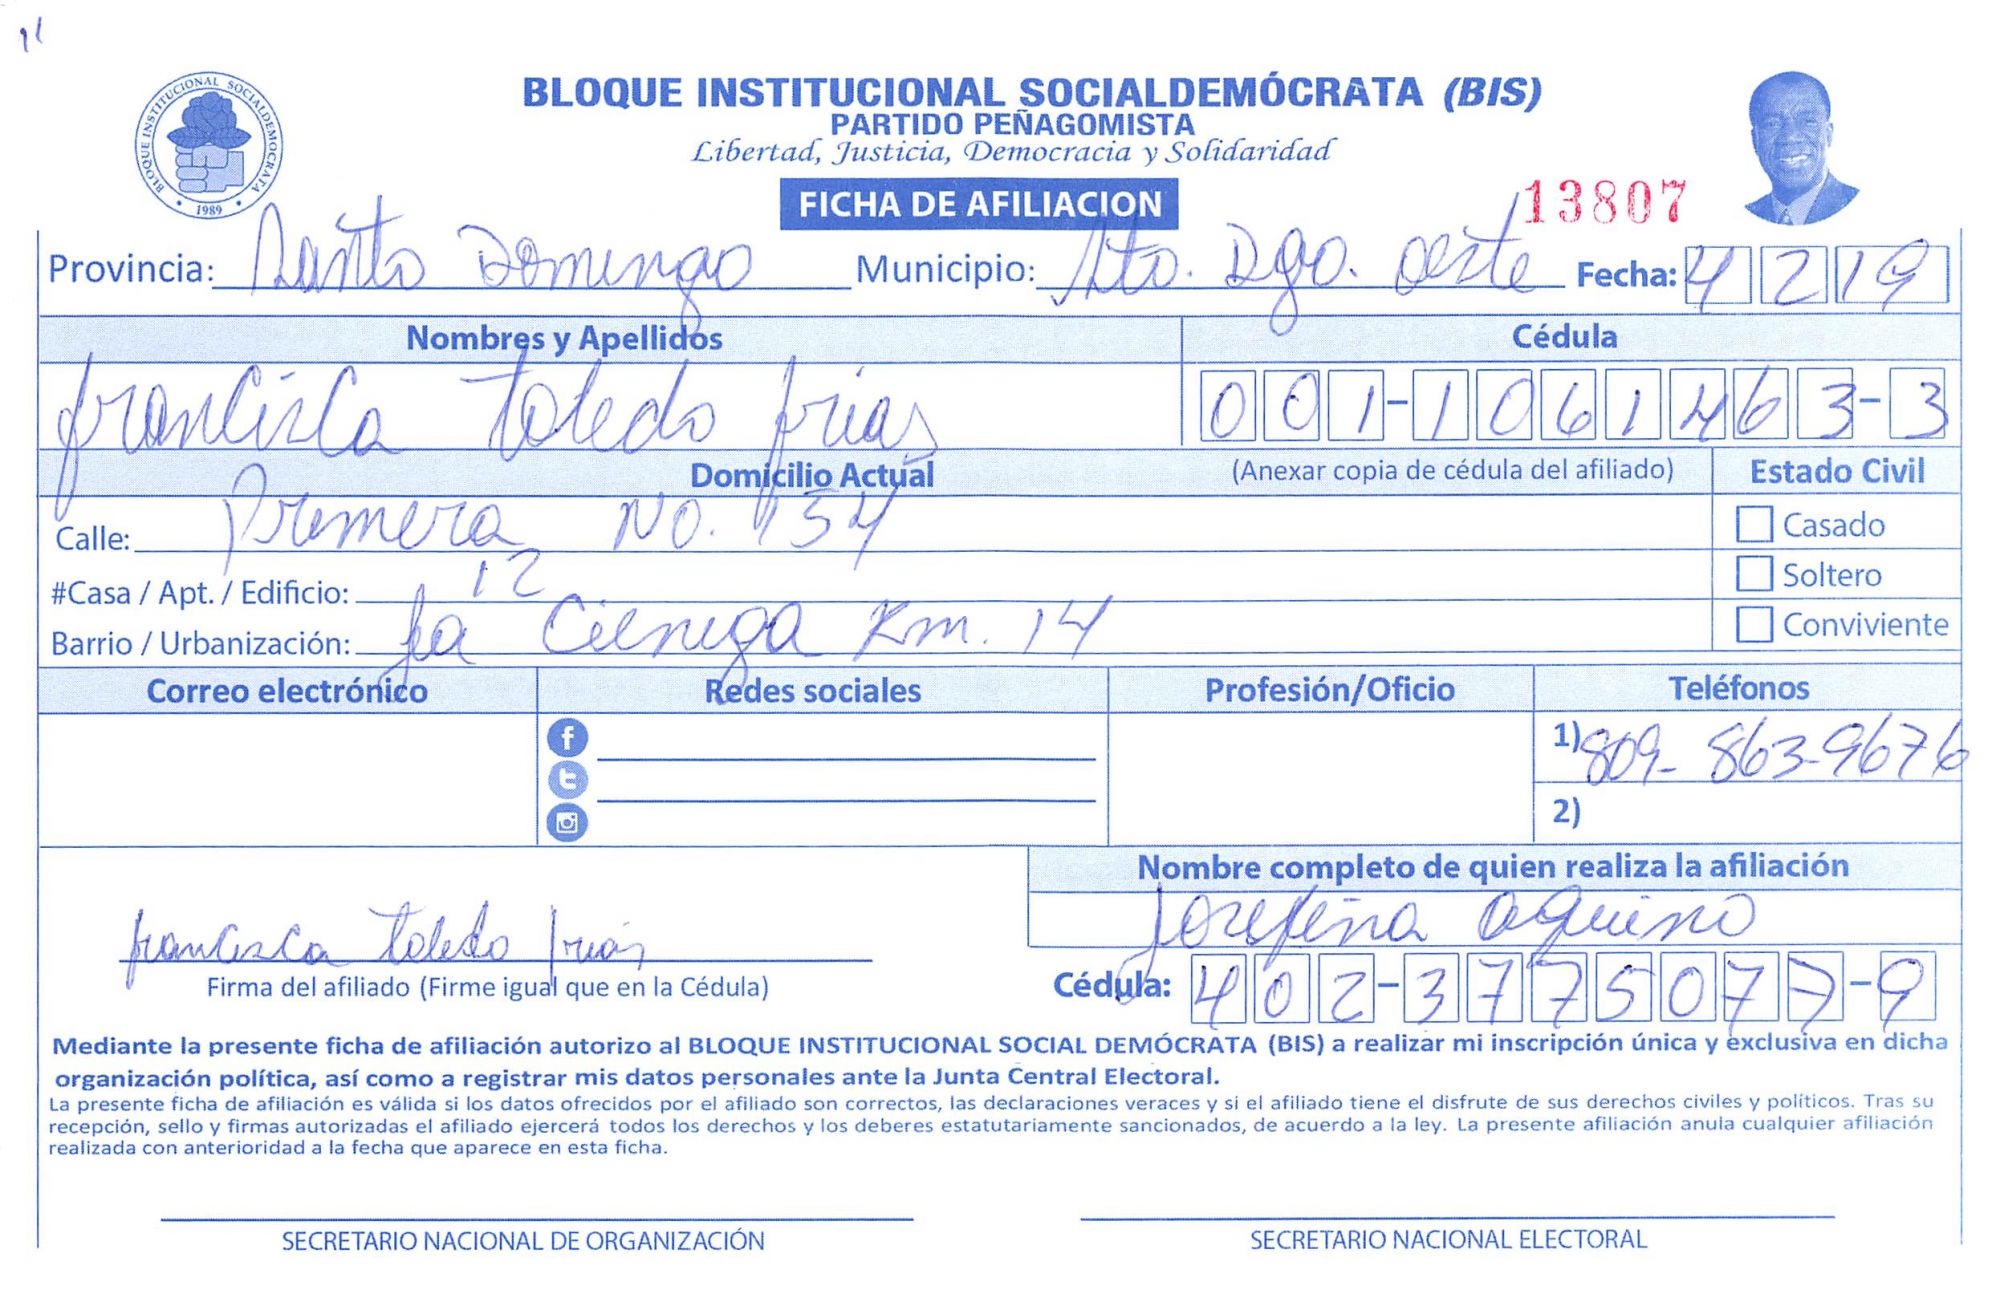 11
BLOQUE INSTITUCIONAL SOCIALDEMÓCRATA (BIS)
PARTIDO PEÑAGOMISTA
Libertad, Justicia, Democracia y Solidaridad
BLOQUE INSTITUCIONAL SOCIALDEMOCRATA
1989
FICHA DE AFILIACION
13807
Provincia: Santo Domingo Municipio: Sto. Dgo. oeste Fecha: 4 2 19
Nombres y Apellidos Cédula
francisca toledo frias 001-1061463-3
Domicilio Actual (Anexar copia de cédula del afiliado) Estado Civil
Calle: Primera No. 154 Casado
#Casa / Apt. / Edificio: 12 Soltero
Barrio / Urbanización: La Cienega Km. 14 Conviviente
Correo electrónico Redes sociales Profesión/Oficio Teléfonos
1) 809-863-9676
2)
Nombre completo de quien realiza la afiliación
Josefina Aquino
francisca toledo frias
Firma del afiliado (Firme igual que en la Cédula) Cédula: 402-3775077-9
Mediante la presente ficha de afiliación autorizo al BLOQUE INSTITUCIONAL SOCIAL DEMÓCRATA (BIS) a realizar mi inscripción única y exclusiva en dicha
organización política, así como a registrar mis datos personales ante la Junta Central Electoral.
La presente ficha de afiliación es válida si los datos ofrecidos por el afiliado son correctos, las declaraciones veraces y si el afiliado tiene el disfrute de sus derechos civiles y políticos. Tras su
recepción, sello y firmas autorizadas el afiliado ejercerá todos los derechos y los deberes estatutariamente sancionados, de acuerdo a la ley. La presente afiliación anula cualquier afiliación
realizada con anterioridad a la fecha que aparece en esta ficha.
SECRETARIO NACIONAL DE ORGANIZACIÓN SECRETARIO NACIONAL ELECTORAL